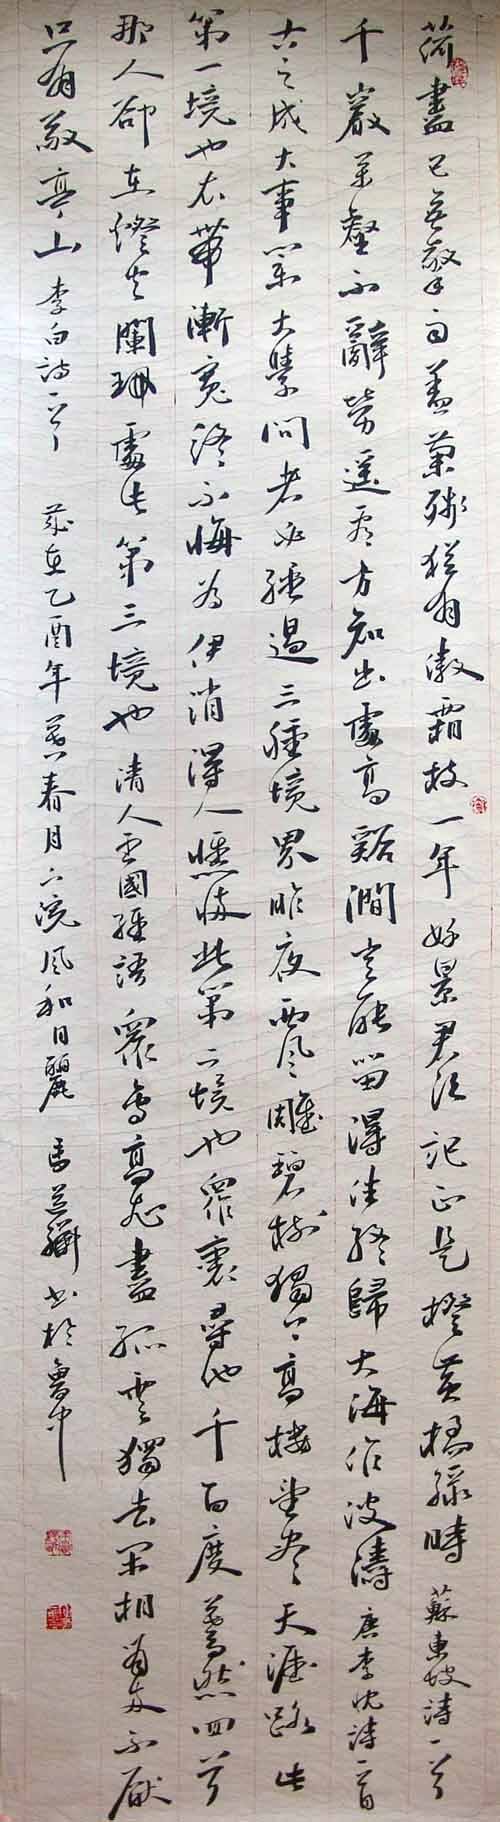 荷盡已無擎雨蓋菊殘猶有傲霜枝一年好景君須記正是橙黃橘綠時 蘇東坡詩一首
千巖萬壑不辭勞遠看方知出處高谿澗豈能留得住終歸大海作波濤 唐李忱詩一首
古之成大事業大學問者必經過三種境界昨夜西風雕碧樹獨上高樓望尽天涯路此
第一境也衣帶漸寬終不悔為伊消得人憔悴此第二境也眾裏尋他千百度驀然回首
那人卻在燈火闌珊處此第三境也清人王國維語眾鳥高飛盡孤雲獨去閑相看兩不厭
只有敬亭山 李白詩一首 歲在乙酉年暮春月浣風和日麗 書於魯中